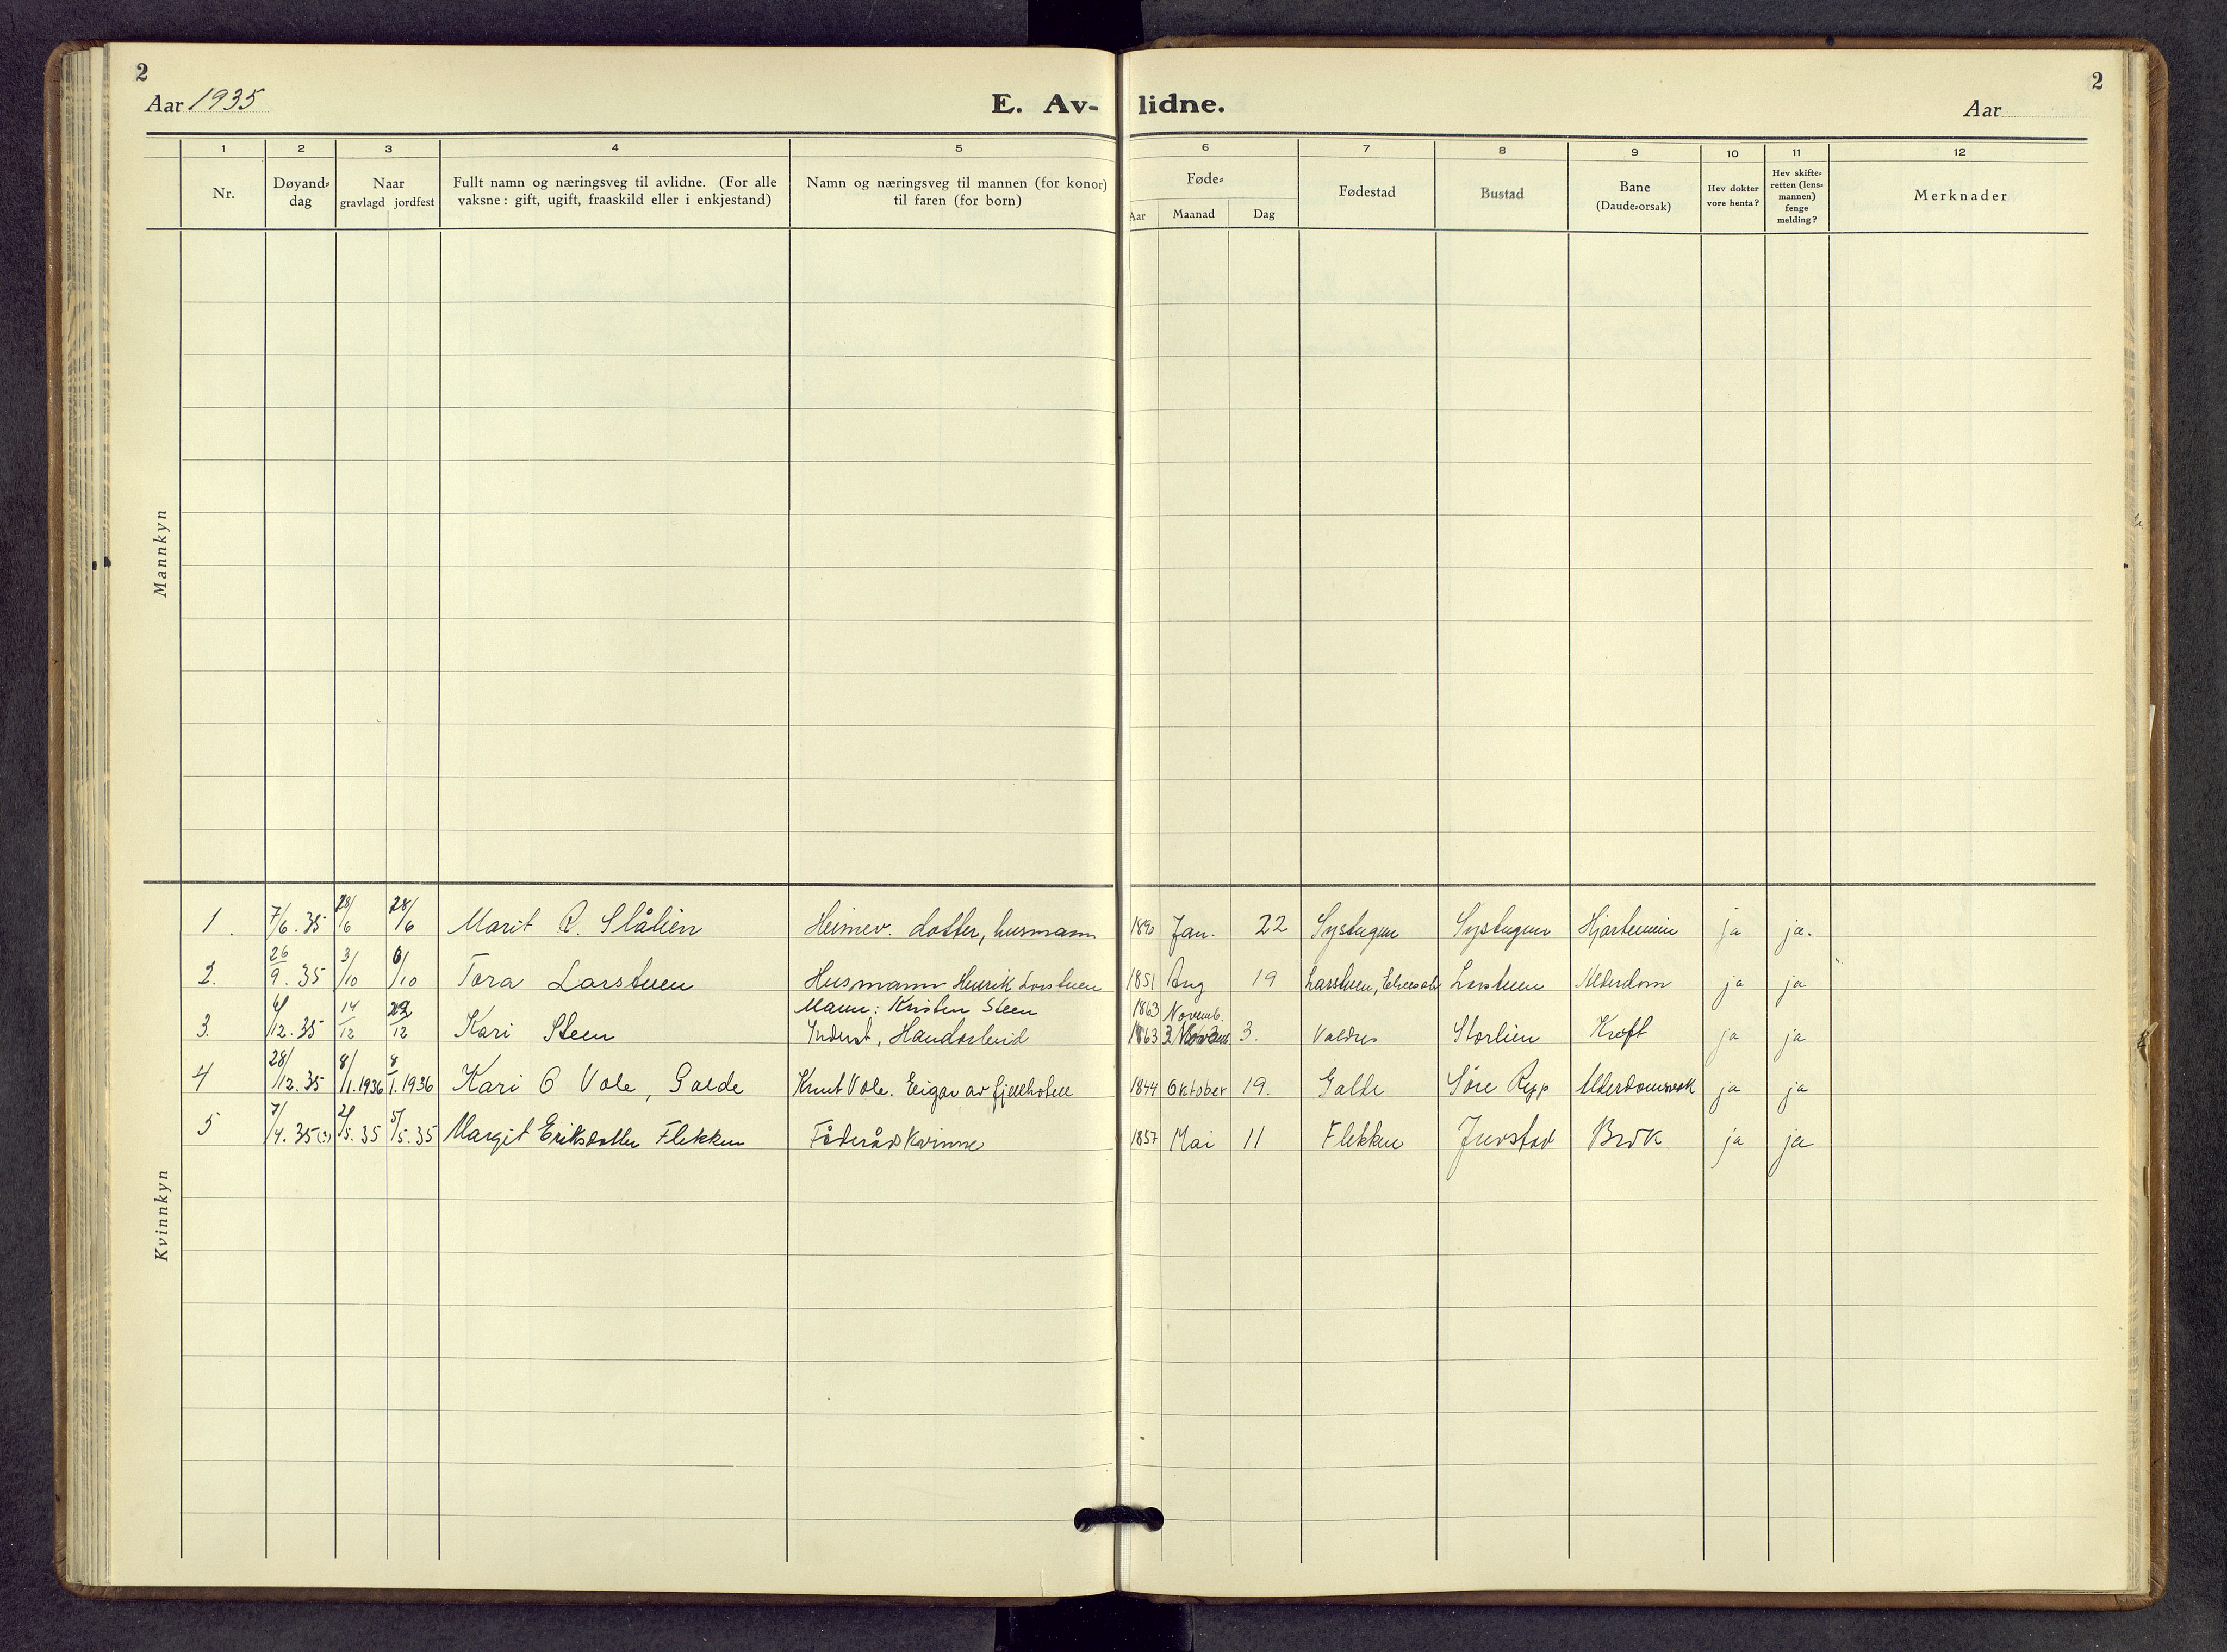 2
2
Aar 1935
E. Av-lidne.
Aar
1 2 3 4 5 6 7 8 9 10 11 12
Nr.
Døyand-dag
Naar gravlagd jordfest
Fullt namn og næringsveg til avlidne. (For alle vaksne: gift, ugift, fraaskild eller i enkjestand)
Namn og næringsveg til mannen (for konor) til faren (for born)
Føde- Aar Maanad Dag
Fødestad
Bustad
Bane (Daude-orsak)
Hev dokter vore henta?
Hev skifte-retten (lens-mannen) fenge melding?
Merknader
Mannkyn
Kvinnkyn
1. 7/6.35 28/6 28/6 Marit R. Slålien Heimev. dotter, husmann 1890 Jan. 22 Systugun Systugun ja ja.
2. 26/9.35 3/10 6/10 Tora Larstuen Husmann Henrik Larstuen 1851 Aug 19 Larstuen, Larstuen Alderdom ja ja
Mann: Kristen Steen 1863 Novemb.
3. 6/12.35 14/12 /12 Kari Steen Inderst, Handarbeid 1863 3. Valdres Storlien Kreft ja ja
4 28/12.35 8/1.1936 8/1.1936 Kari O Vole, Galde Knut Vole. Eigar av fjellhotell 1844 Oktober 19. Galde Søre Repp ja ja
5 7/4.35 (3) 2/5.35 5/5.35 Margit Eriksdotter Flekken Føderådskvinne 1857 Mai 11 Flekken Juvstad Brok ja ja